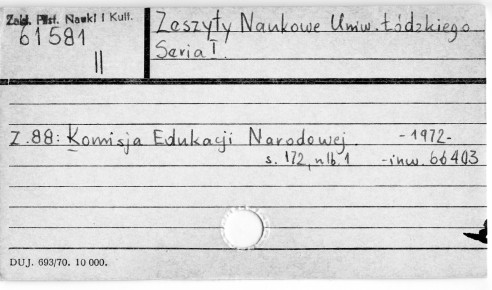 Zakł. Hist. Nauki i Kult.
61581
II
Zeszyty Naukowe Uniw. Łódzkiego
Seria I.
Z.88: Komisja Edukacji Narodowej. -1972-
s. 172, nlb. 1 -inw. 66403
DUJ. 693/70. 10 000.